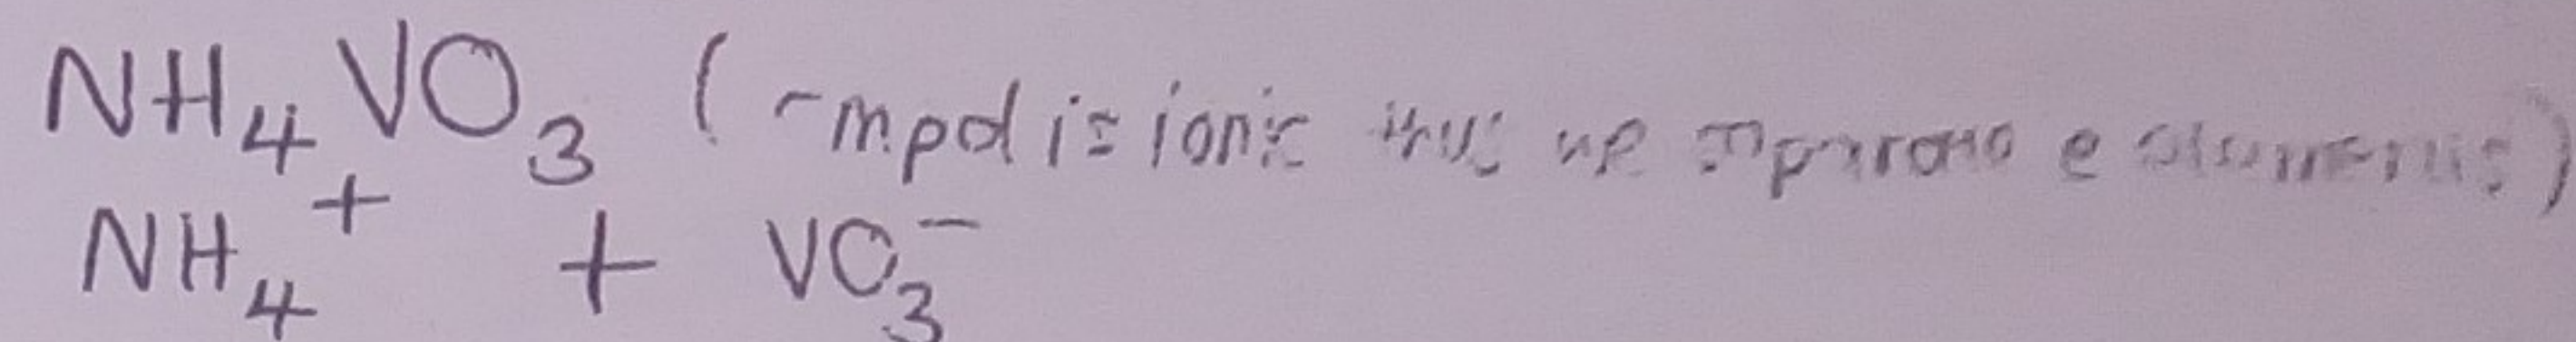 NH₄VO₃ (cmpd is ionic thus we separate e elements)
NH₄⁺ + VO₃⁻